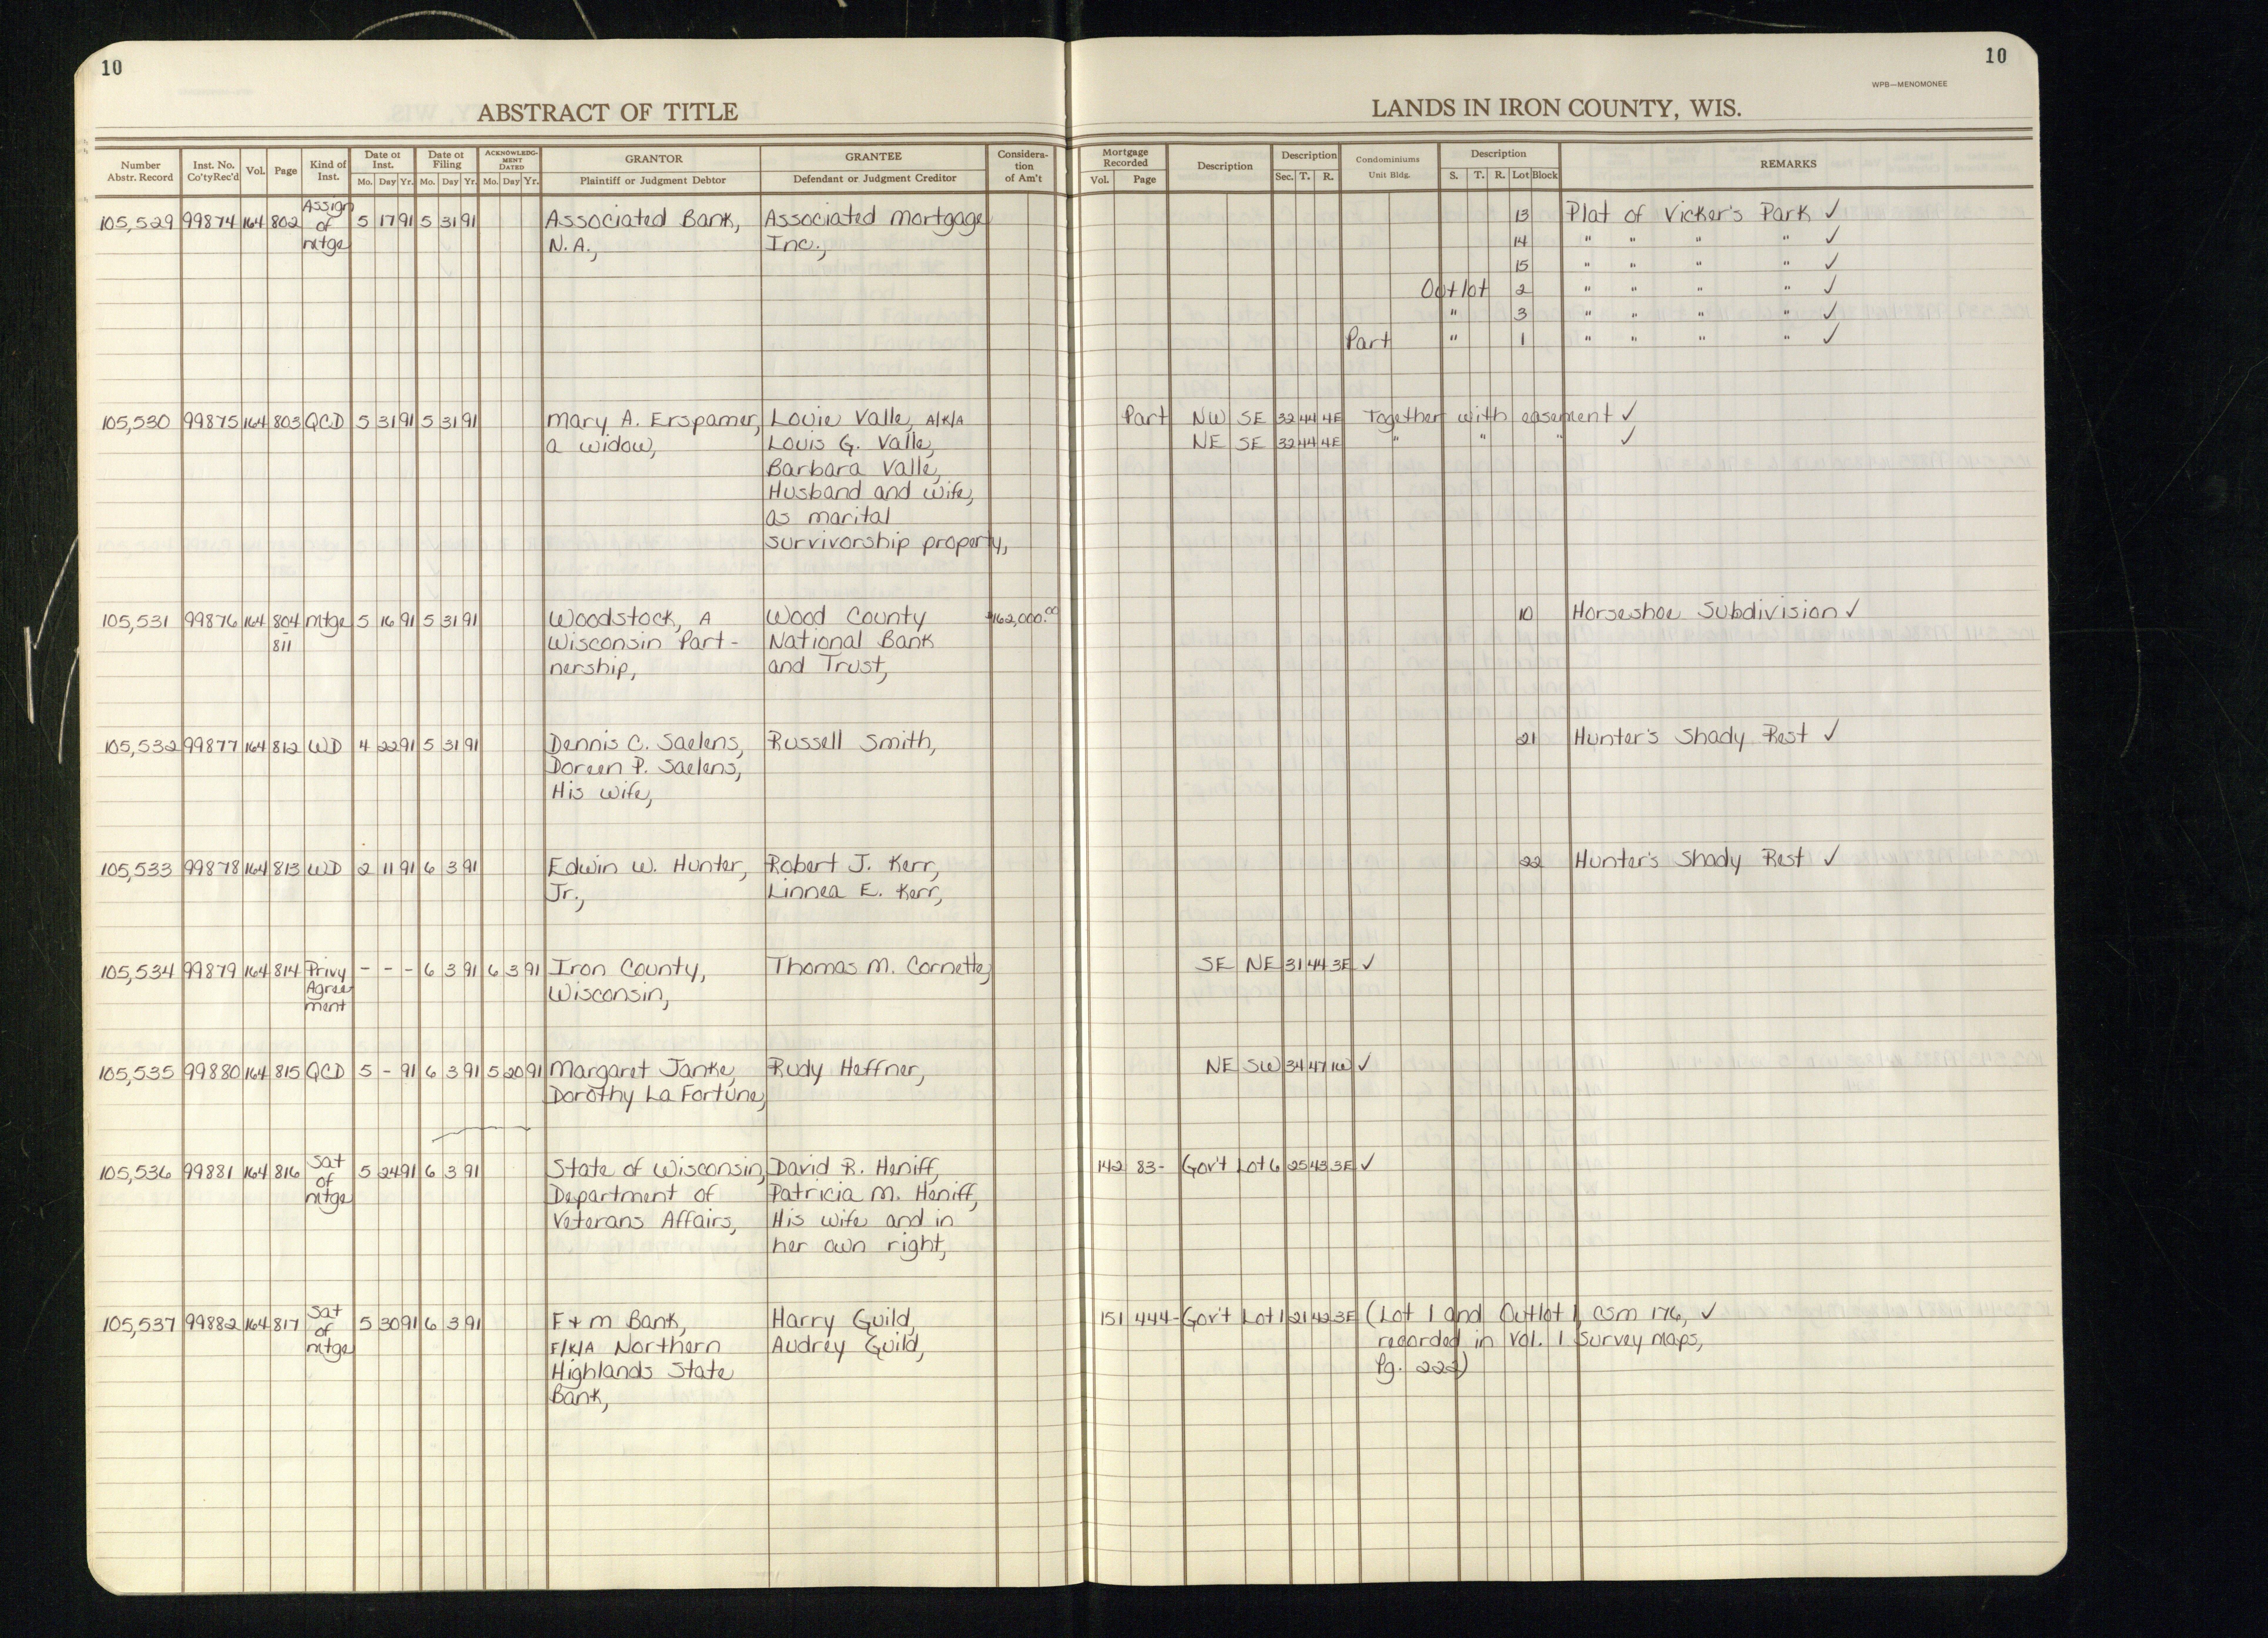 10
10
WPB—MENOMONEE
ABSTRACT OF TITLE
LANDS IN IRON COUNTY, WIS.
Number Abstr. Record | Inst. No. Co'ty Rec'd | Vol. | Page | Kind of Inst. | Date of Inst. Mo. Day Yr. | Date of Filing Mo. Day Yr. | ACKNOWLEDGMENT DATED Mo. Day Yr. | GRANTOR Plaintiff or Judgment Debtor | GRANTEE Defendant or Judgment Creditor | Consideration of Am't | Mortgage Recorded Vol. Page | Description | Description Sec. T. R. | Condominiums Unit Bldg. | Description S. T. R. Lot Block | REMARKS
105,529 99874 164 802 Assign of mtge 5 17 91 5 31 91 Associated Bank, Associated Mortgage 13 Plat of Vicker's Park ✓
N.A., Inc., 14 " " " " ✓
15 " " " " ✓
Outlot 2 " " " " ✓
" 3 " " " " ✓
Part " 1 " " " " ✓
105,530 99875 164 803 QCD 5 31 91 5 31 91 Mary A. Erspamer, Louie Valle, A/K/A Part NW SE 32 44 4E Together with easement ✓
a widow, Louis G. Valle, NE SE 32 44 4E " " " ✓
Barbara Valle,
Husband and wife,
as marital
survivorship property,
105,531 99876 164 804 mtge 5 16 91 5 31 91 Woodstock, A Wood County $162,000.00 10 Horseshoe Subdivision ✓
- 811 Wisconsin Part- National Bank
nership, and Trust,
105,532 99877 164 812 WD 4 22 91 5 31 91 Dennis C. Saelens, Russell Smith, 21 Hunter's Shady Rest ✓
Doreen P. Saelens,
His wife,
105,533 99878 164 813 WD 2 11 91 6 3 91 Edwin W. Hunter, Robert J. Kerr, 22 Hunter's Shady Rest ✓
Jr., Linnea E. Kerr,
105,534 99879 164 814 Privy - - - 6 3 91 6 3 91 Iron County, Thomas M. Cornette, SE NE 31 44 3E ✓
Agree Wisconsin,
ment
105,535 99880 164 815 QCD 5 - 91 6 3 91 5 20 91 Margaret Janke, Rudy Heffner, NE SW 34 47 1W ✓
Dorothy La Fortune,
105,536 99881 164 816 Sat of mtge 5 24 91 6 3 91 State of Wisconsin, David R. Heniff, 142 83- Gov't Lot 6 25 43 3E ✓
Department of Patricia M. Heniff,
Veterans Affairs, His wife and in
her own right,
105,537 99882 164 817 Sat of mtge 5 30 91 6 3 91 F+M Bank, Harry Guild, 151 444- Gov't Lot 1 21 42 3E (Lot 1 and Outlot 1, CSM 176, ✓
F/K/A Northern Audrey Guild, recorded in Vol. 1 Survey Maps,
Highlands State Pg. 222)
Bank,